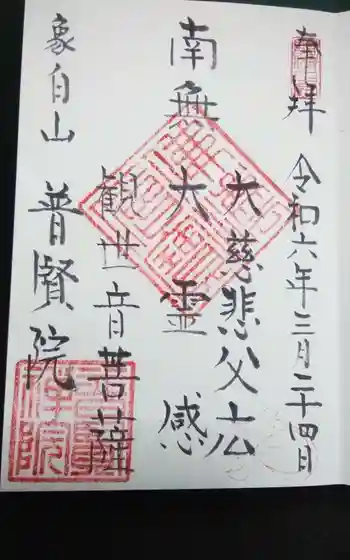 奉拝
令和六年三月二十四日
大慈悲父広
南無大霊感
観世音菩薩
象白山
普賢院